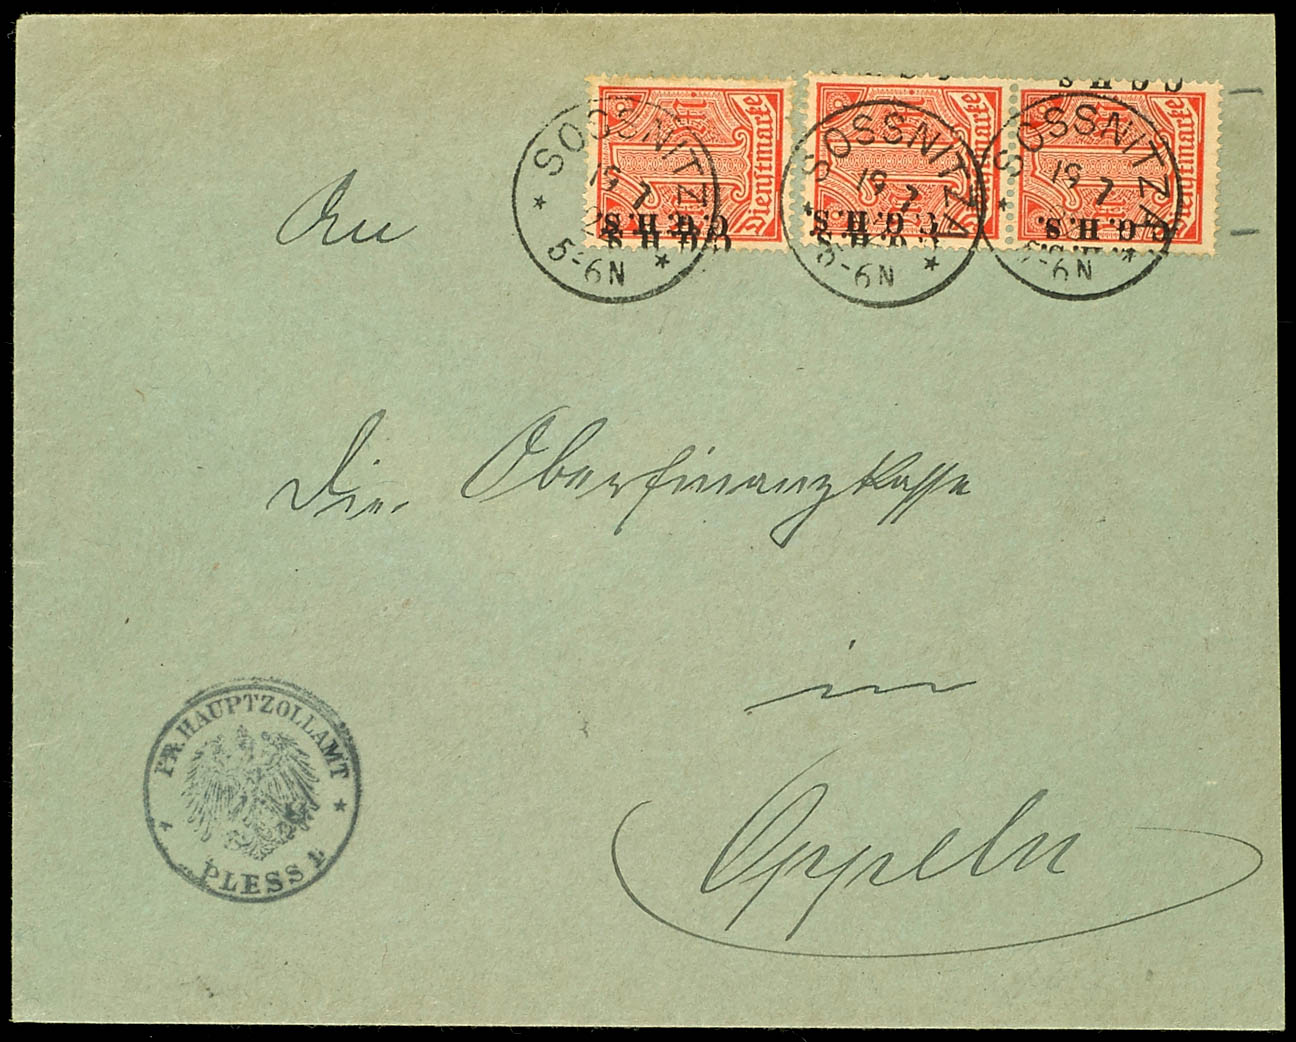 Dienstmarke
C.G.H.S.
C.G.H.S.
SOSSNITZA
19 7
5-6N
C.G.H.S.
SOSSNITZA
19 7
5-6N
C.G.H.S.
Dienstmarke
C.G.H.S.
SOSSNITZA
19 7
5-6N
An
Die Oberfinanzkasse
in
Oppeln
PR. HAUPTZOLLAMT
PLESS